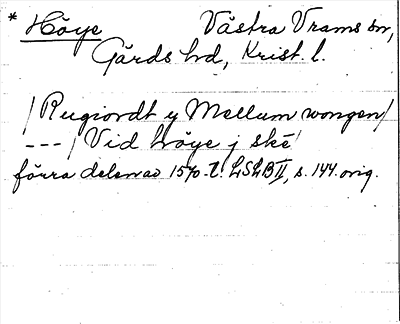 * Höye Västra Vrams sn,
Gärds hd, Krist. l.
/Rugiordt y Mellum wongen/
---/Vid höye j skè/
förra delen av 1570-t. LSLB II, s. 144. orig.